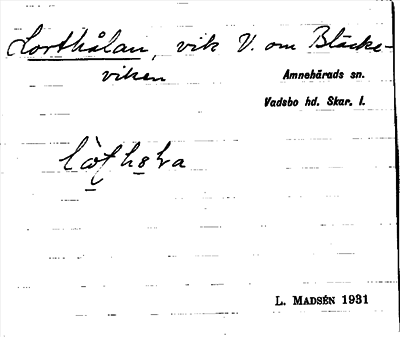 Lorthålan, vik V. om Bläcke-
viken
Amnehärads sn.
Vadsbo hd. Skar. l.
L. MADSÉN 1931